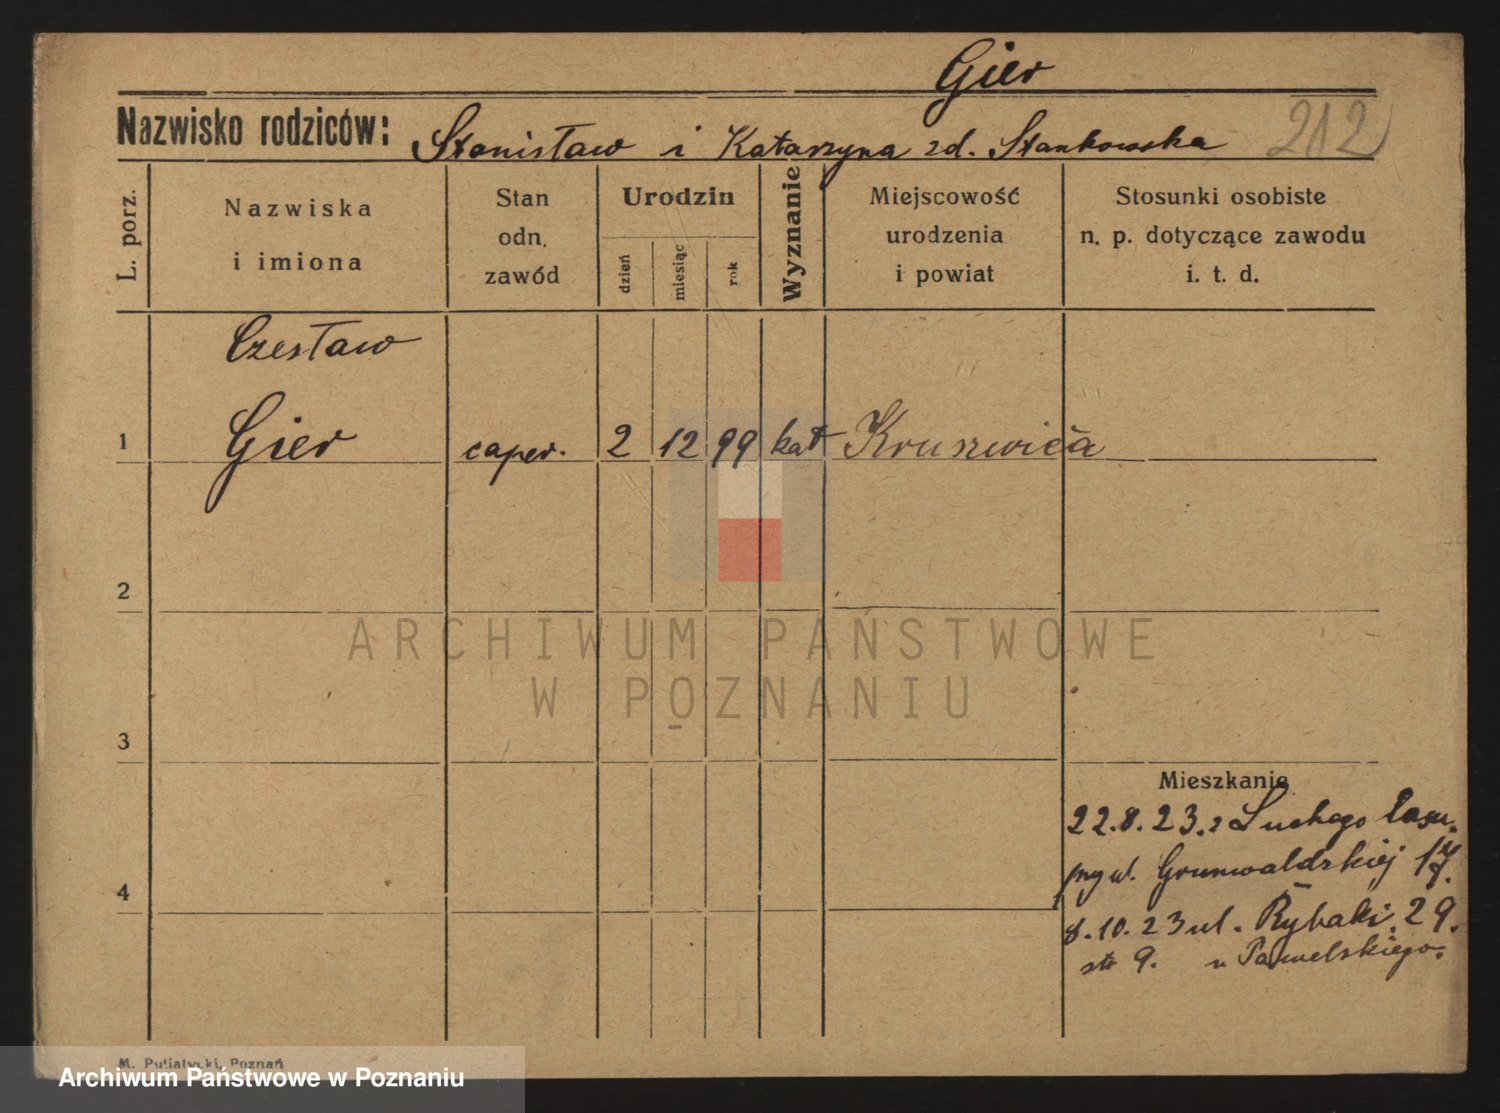 Gier
Nazwisko rodziców: Stanisław i Katarzyna zd. Stankowska 212
L. porz.
Nazwiska i imiona
Stan odn. zawód
Urodzin
dzień
miesiąc
rok
Wyznanie
Miejscowość urodzenia i powiat
Stosunki osobiste n. p. dotyczące zawodu i. t. d.
Czesław
1 Gier 2 12 99 kat Kruszwica
2
ARCHIWUM PAŃSTWOWE
W POZNANIU
3
Mieszkanie
22.8.23. z Suchego Lasu
ul. Grunwaldzkiej 17.
4
8.10.23 ul. Rybaki. 29.
9. u Pawelskiego.
M. Putiatycki, Poznań
Archiwum Państwowe w Poznaniu